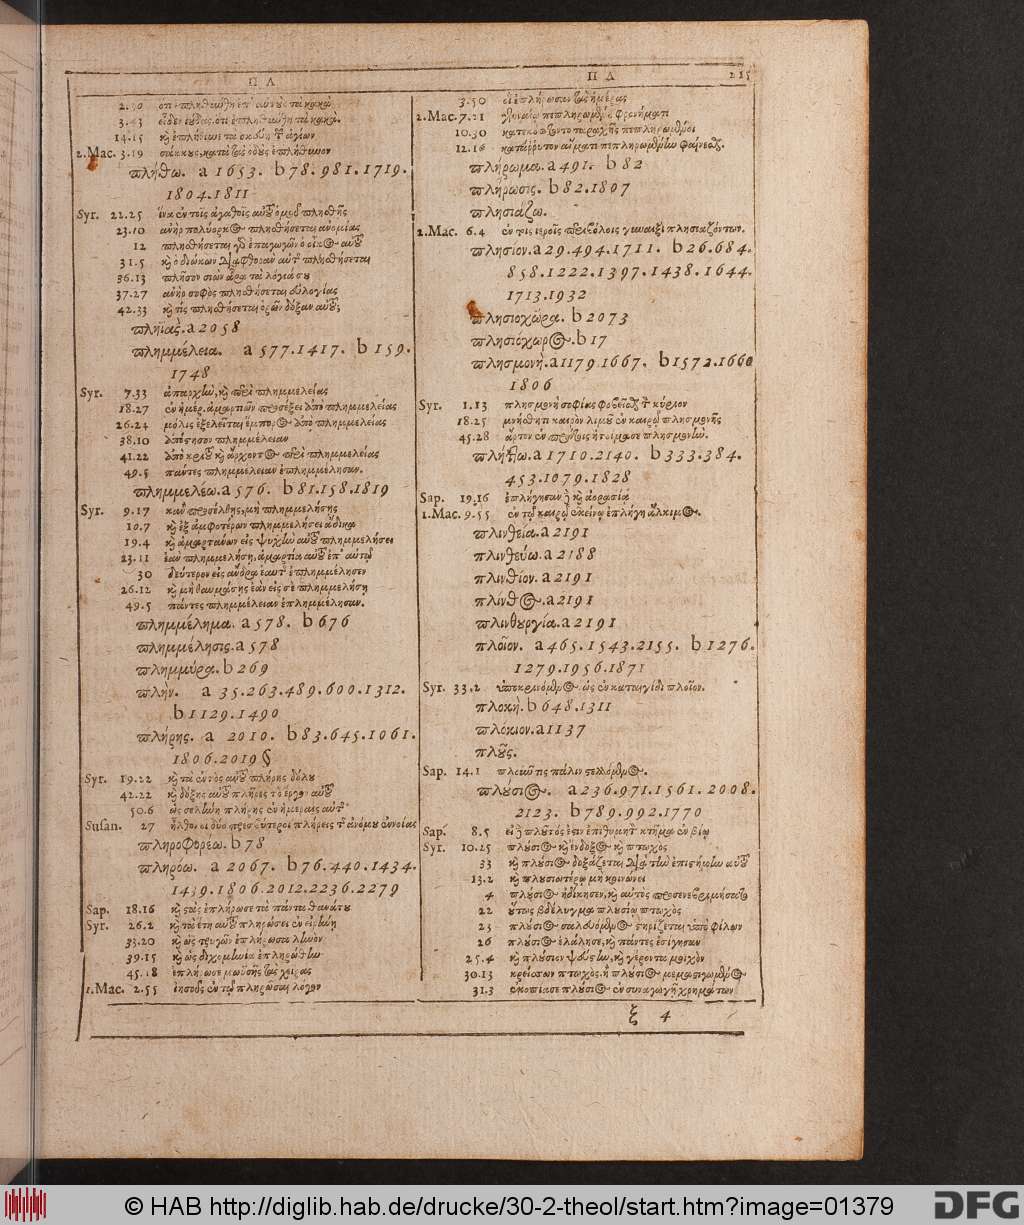 ΠΛ
ΠΛ 215
14.15
2.Mac. 3.19
πλήθω. a 1653. b 78.981.1719.
1804.1811
Syr. 22.25 ἵνα ἐν τοῖς ἀγαθοῖς αὐτοῦ ὁμοῦ πλησθῇς
23.10 ἀνὴρ πολύορκος πλησθήσεται ἀνομίας
12 πλησθήσεται ἐπαγωγῶν ὁ οἶκος αὐτοῦ
31.5 καὶ ὁ διώκων διαφθορὰν αὐτὸς πλησθήσεται
36.13 πλῆσον σιὼν ἆραι τὰ λόγιά σου
37.27 ἀνὴρ σοφὸς πλησθήσεται εὐλογίας
42.33 καὶ τίς πλησθήσεται ὁρῶν δόξαν αὐτοῦ;
πληϊὰς. a 2058
πλημμέλεια. a 577.1417. b 159.
1748
Syr. 7.33 ἀπαρχὴν, καὶ περὶ πλημμελείας
18.27 ἐν ἡμέρ. ἁμαρτιῶν προσέξει ἀπὸ πλημμελείας
26.24 μόλις ἐξελεῖται ἔμπορος ἀπὸ πλημμελείας
38.10 ἀπόστησον πλημμέλειαν
41.22 ἀπὸ κριτοῦ καὶ ἄρχοντος περὶ πλημμελείας
49.5 πάντες πλημμέλειαν ἐπλημμέλησαν.
πλημμελέω. a 576. b 81.158.1819
Syr. 9.17 κἂν προσέλθῃς, μὴ πλημμελήσῃς
10.7 καὶ ἐξ ἀμφοτέρων πλημμελήσει ἄδικα
19.4 καὶ ἁμαρτάνων εἰς ψυχὴν αὐτοῦ πλημμελήσει
23.11 ἐὰν πλημμελήσῃ, ἁμαρτία αὐτοῦ ἐπ' αὐτῷ
30 δεύτερον εἰς ἄνδρα ἑαυτῆς ἐπλημμέλησεν
26.12 καὶ μὴ θαυμάσῃς ἐὰν εἰς σὲ πλημμελήσῃ
49.5 πάντες πλημμέλειαν ἐπλημμέλησαν.
πλημμέλημα. a 578. b 676
πλημμέλησις. a 578
πλημμύρα. b 269
πλήν. a 35.263.489.600.1312.
b 1129.1490
πλήρης. a 2010. b 83.645.1061.
1806.2019 §
Syr. 19.22 καὶ τὰ ἐντὸς αὐτοῦ πλήρης δόλου
42.22 καὶ δόξης αὐτοῦ πλῆρες τὸ ἔργον αὐτοῦ
50.6 ὡς σελήνη πλήρης ἐν ἡμέραις αὐτῆς
Susan. 27 ἦλθον οἱ δύο πρεσβύτεροι πλήρεις τῆς ἀνόμου ἐννοίας
πληροφορέω. b 78
πληρόω. a 2067. b 76.440.1434.
1439.1806.2012.2236.2279
Sap. 18.16 καὶ στὰς ἐπλήρωσε τὰ πάντα θανάτου
Syr. 26.2 καὶ τὰ ἔτη αὐτοῦ πληρώσει ἐν εἰρήνῃ
33.20 καὶ ὡς τρυγῶν ἐπλήρωσα ληνόν
39.15 καὶ ὡς διχομηνία ἐπληρώθην
45.18 ἐπλήρωσε μωϋσῆς τὰς χεῖρας
1.Mac. 2.55 ἰησοῦς ἐν τῷ πληρῶσαι λόγον
3.50
2.Mac. 7.21 γενναίῳ πεπληρωμένη φρονήματι
10.30 κατεκόπτοντο ταραχῆς πεπληρωμένοι
12.16 κατάρρυτον αἵματι πεπληρωμένην φαίνεσθαι.
πλήρωμα. a 491. b 82
πλήρωσις. b 82.1807
πλησιάζω.
2.Mac. 6.4 ἐν τοῖς ἱεροῖς περιβόλοις γυναιξὶ πλησιαζόντων.
πλησίον. a 29.494.1711. b 26.684.
858.1222.1397.1438.1644.
1713.1932
πλησιοχώρα. b 2073
πλησιόχωρος. b 17
πλησμονὴ. a 1179.1667. b 1572.1660
1806
Syr. 1.13 πλησμονὴ σοφίας φοβεῖσθαι τὸν κύριον
18.25 μνήσθητι καιρὸν λιμοῦ ἐν καιρῷ πλησμονῆς
45.28 ἄρτον ἐν πρώτοις ἡτοίμασε πλησμονήν.
πλήττω. a 1710.2140. b 333.384.
453.1079.1828
Sap. 19.16 ἐπλήγησαν δὲ καὶ ἀορασίᾳ
1.Mac. 9.55 ἐν τῷ καιρῷ ἐκείνῳ ἐπλήγη ἄλκιμος.
πλινθεία. a 2191
πλινθεύω. a 2188
πλινθίον. a 2191
πλίνθος. a 2191
πλινθουργία. a 2191
πλοῖον. a 465.1543.2155. b 1276.
1279.1956.1871
Syr. 33.2 ὑποκρινόμενος ὡς ἐν καταιγίδι πλοῖον.
πλοκή. b 648.1311
πλόκιον. a 1137
πλοῦς.
Sap. 14.1 πλοῦν τις πάλιν στελλόμενος.
πλούσιος. a 236.971.1561.2008.
2123. b 789.992.1770
Sap. 8.5 εἰ δὲ πλοῦτός ἐστιν ἐπιθυμητὸν κτῆμα ἐν βίῳ
Syr. 10.25 πλούσιος καὶ ἔνδοξος καὶ πτωχὸς
33 καὶ πλούσιος δοξάζεται διὰ τὴν ἐπιστήμην αὐτοῦ
13.2 καὶ πλουσιωτέρῳ μὴ κοινώνει
4 πλούσιος ἠδίκησεν, καὶ αὐτὸς προσενεβριμήσατο
22 οὕτως βδέλυγμα πλουσίῳ πτωχὸς
23 πλούσιος σαλευόμενος στηρίζεται ὑπὸ φίλων
26 πλούσιος ἐλάλησε, καὶ πάντες ἐσίγησαν
25.4 καὶ πλούσιον ψεύστην, καὶ γέροντα μοιχὸν
30.13 κρείσσων πτωχὸς, ἢ πλούσιος μεμαστιγωμένος
31.3 ἐκοπίασε πλούσιος ἐν συναγωγῇ χρημάτων
ξ 4
© HAB http://diglib.hab.de/drucke/30-2-theol/start.htm?image=01379
DFG